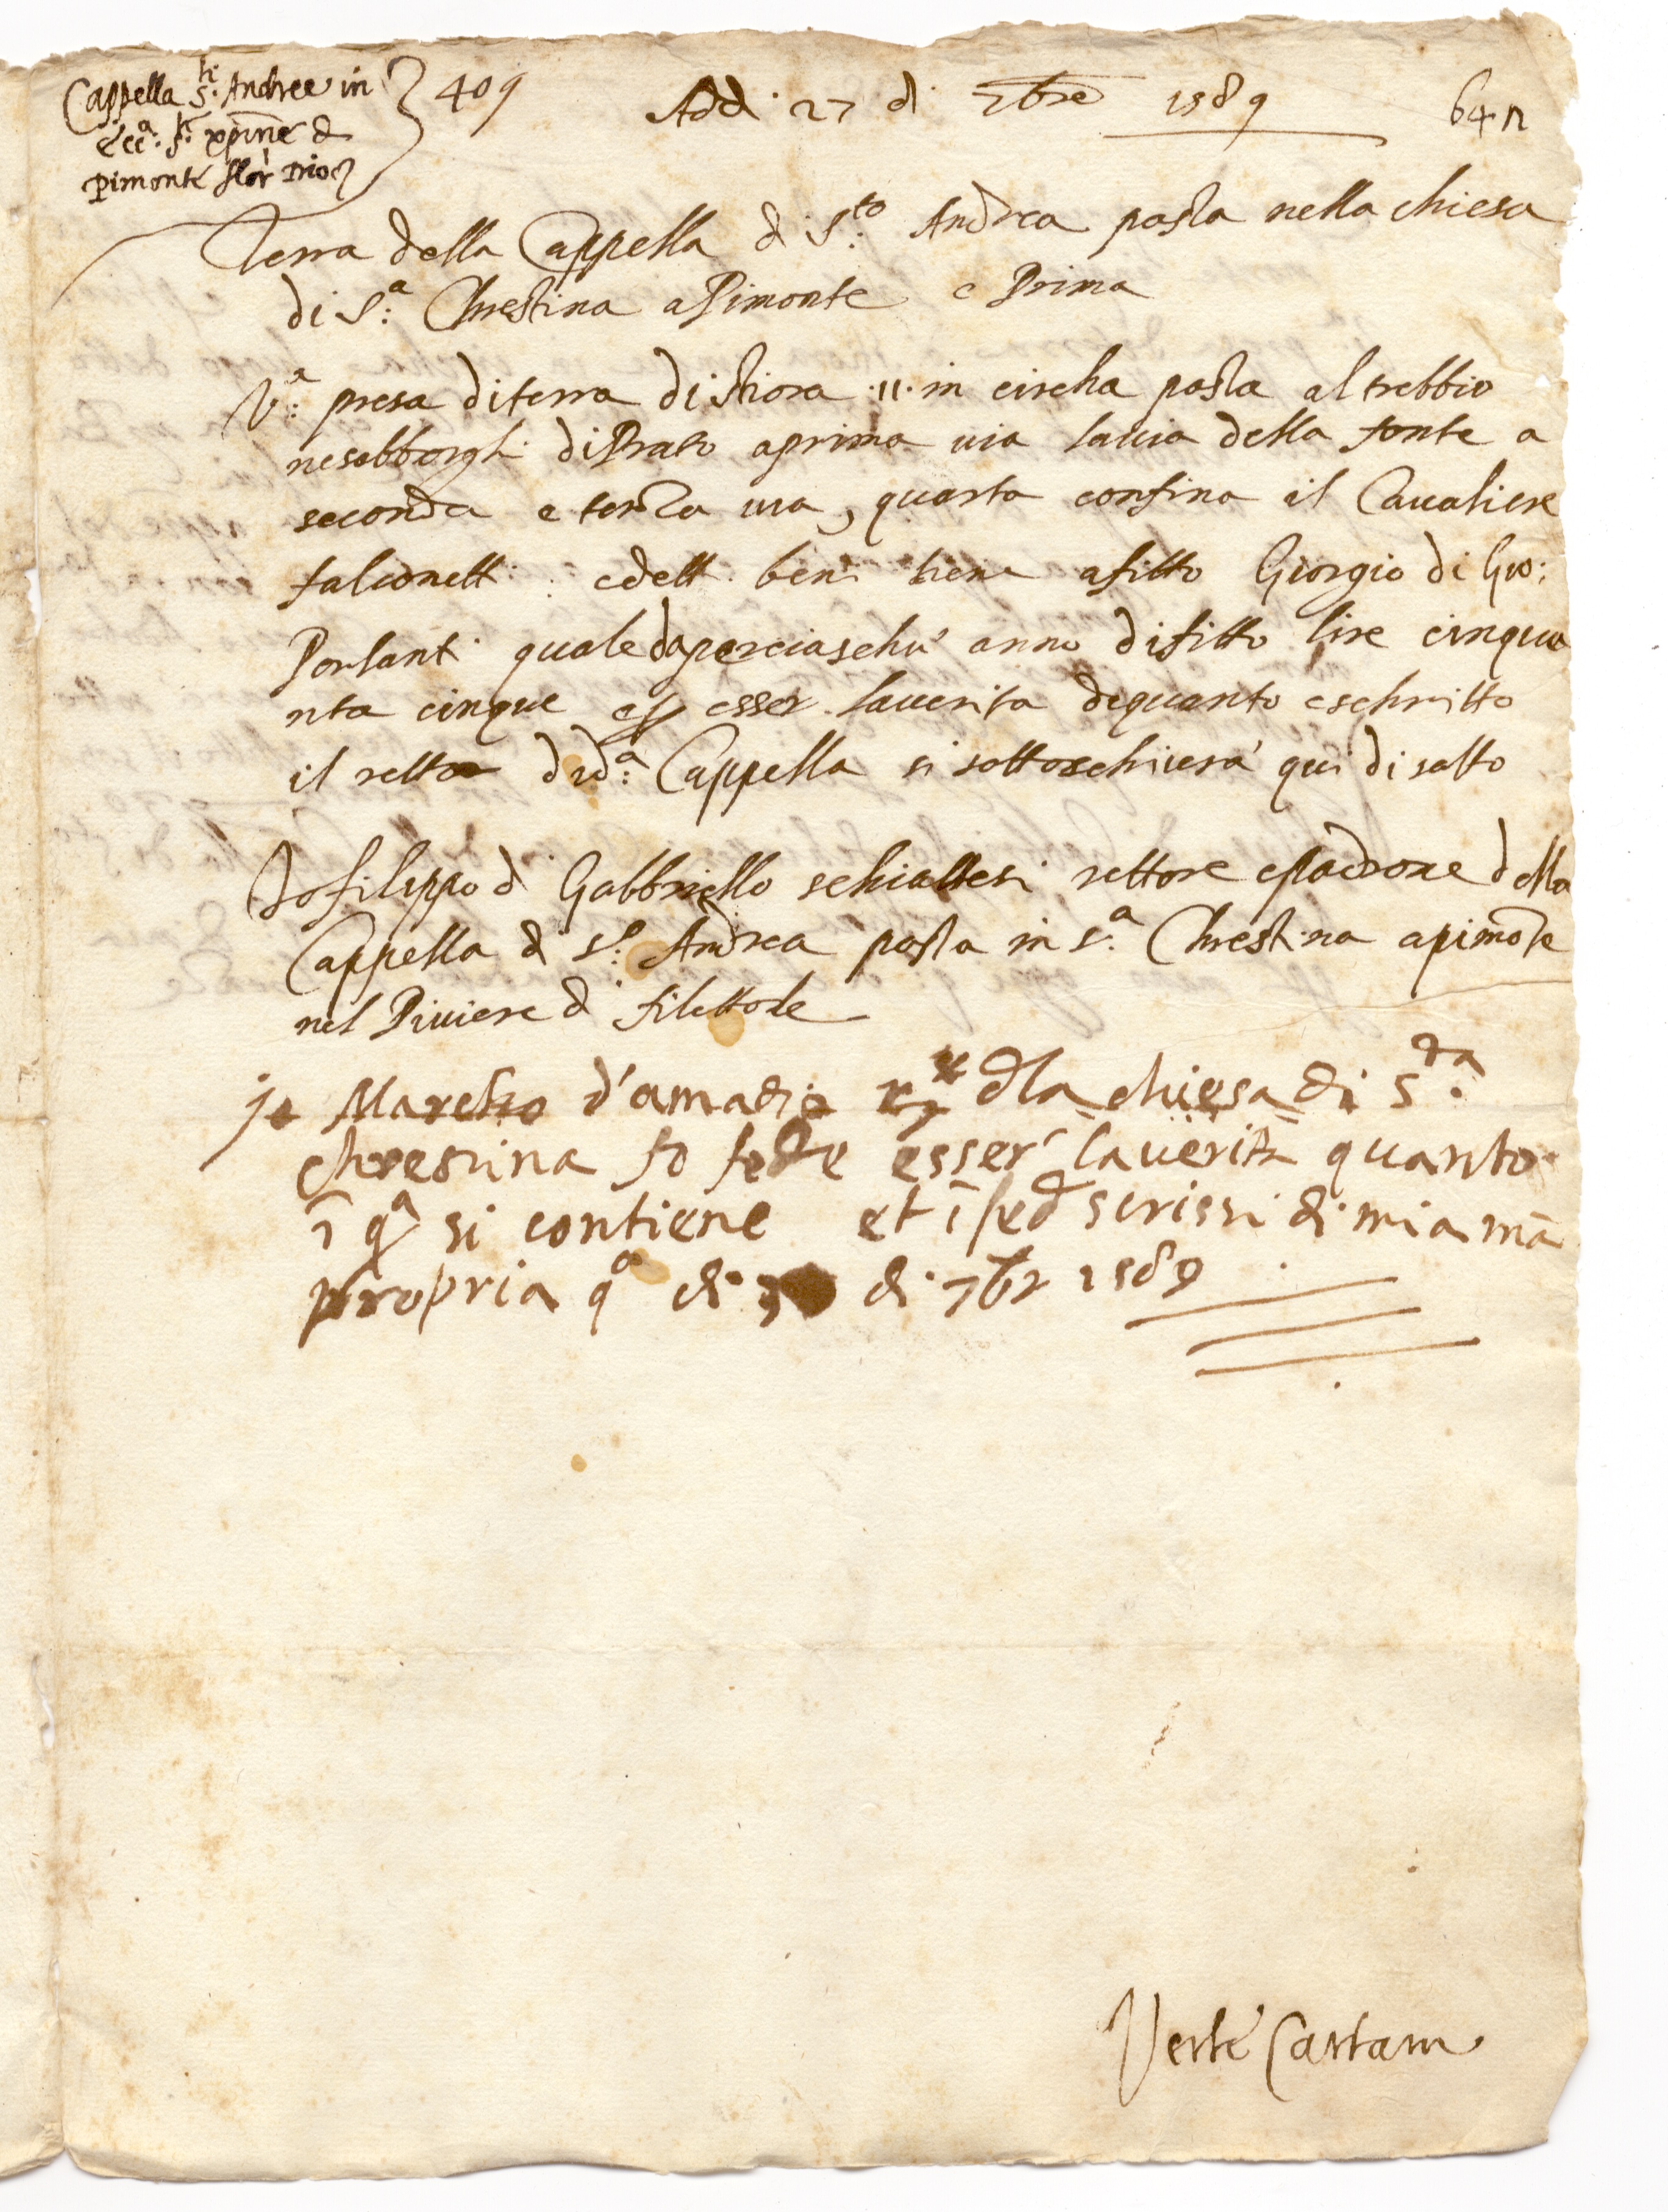 Cappella S.ti Andree in
ecc.a S.te xpine d
Pimonte flor. Dioc.
409
Addi 27 di 7bre 1589
64 n
Terra della Cappella di S.to Andrea posta nella chiesa
di S.a Chrestina a Pimonte e Prima
V.a presa di terra di stiora .11. in circha posta al trebbio
ne sobborghi di Prato a prima via la via della fonte a
seconda e terza via, quarta confina il Cavaliere
falconetti: e dett. beni tiene afitto Giorgio di Gio:
Porlanti quale da per ciaschu' anno di fitto lire cinqua
nta cinque esser la verita di quanto e schritto
il rettor di d.a Cappella si sottoschiverà qui di sotto
Io filippo di Gabbriello schiattesi rettore e padrone della
Cappella di S.o Andrea posta in S.a Chrestina a pimōte
nel Piviere di filettole
jo Marcho d'amadio dla chiesa di S.ta
chrestina fo fede esser' la verità quanto
ī q.a si contiene et ī fed scrissi di mia mā
propria q.a di di 7br 1589
Verte Cartam